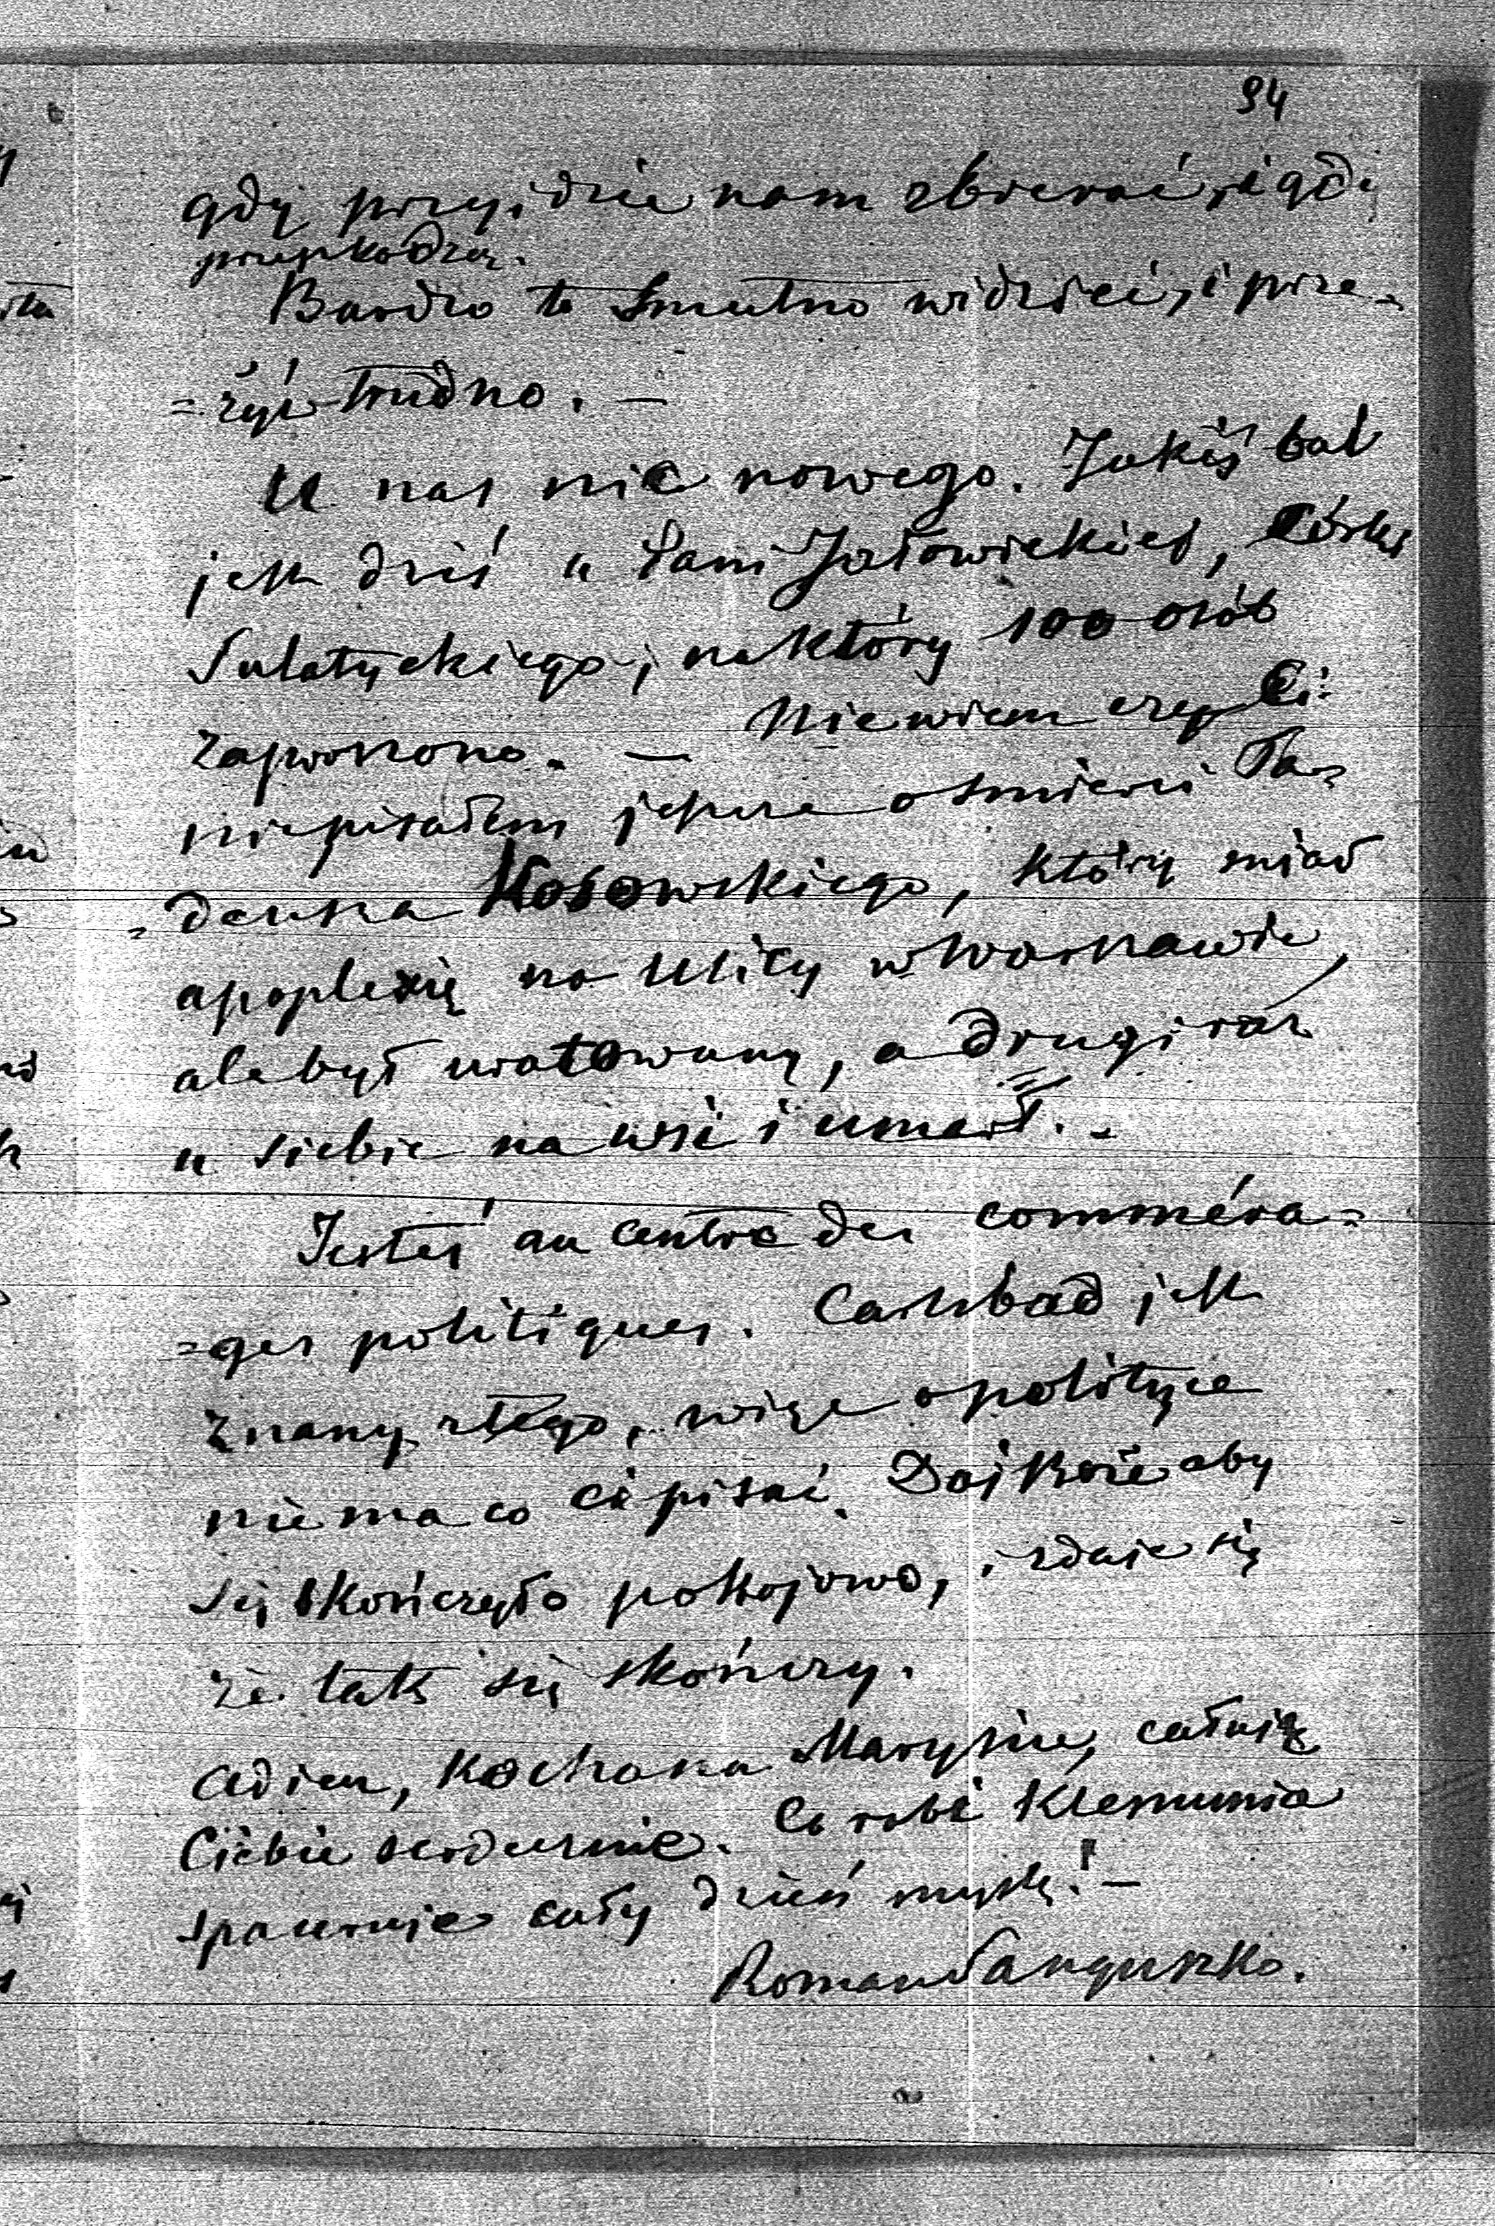 94
gdy przyjdzie nam zbierać, i gdy
przeszkodzą.
Bardzo to smutno widzieć, i prze-
=żyć trudno. —
U nas nic nowego. Jakiś bal
jest dziś u Pani Jełowickiej, Córki
Sulatyckiego, na który 100 osób
zaproszono. — Nie wiem czy Ci
nie pisałem jeszcze o śmierci Ta=
=deusza Kosowskiego, który miał
apoplexię na Ulicy w Warszawie,
ale był uratowany, a drugi raz
u siebie na wsi i umarł. -
Jesteś au centre des commera=
=ges politiques. Carlsbad jest
znany z tego, więc o polityce
nie ma co Ci pisać. Daj Boże aby
się skończyło pokojowo, i zdaje się
że tak się skończy.
Adieu, Kochana Marysiu, całuję
Ciebie serdecznie. Co robi Klemunia
spaceruje cały dzień myślę! —
Roman Sanguszko.